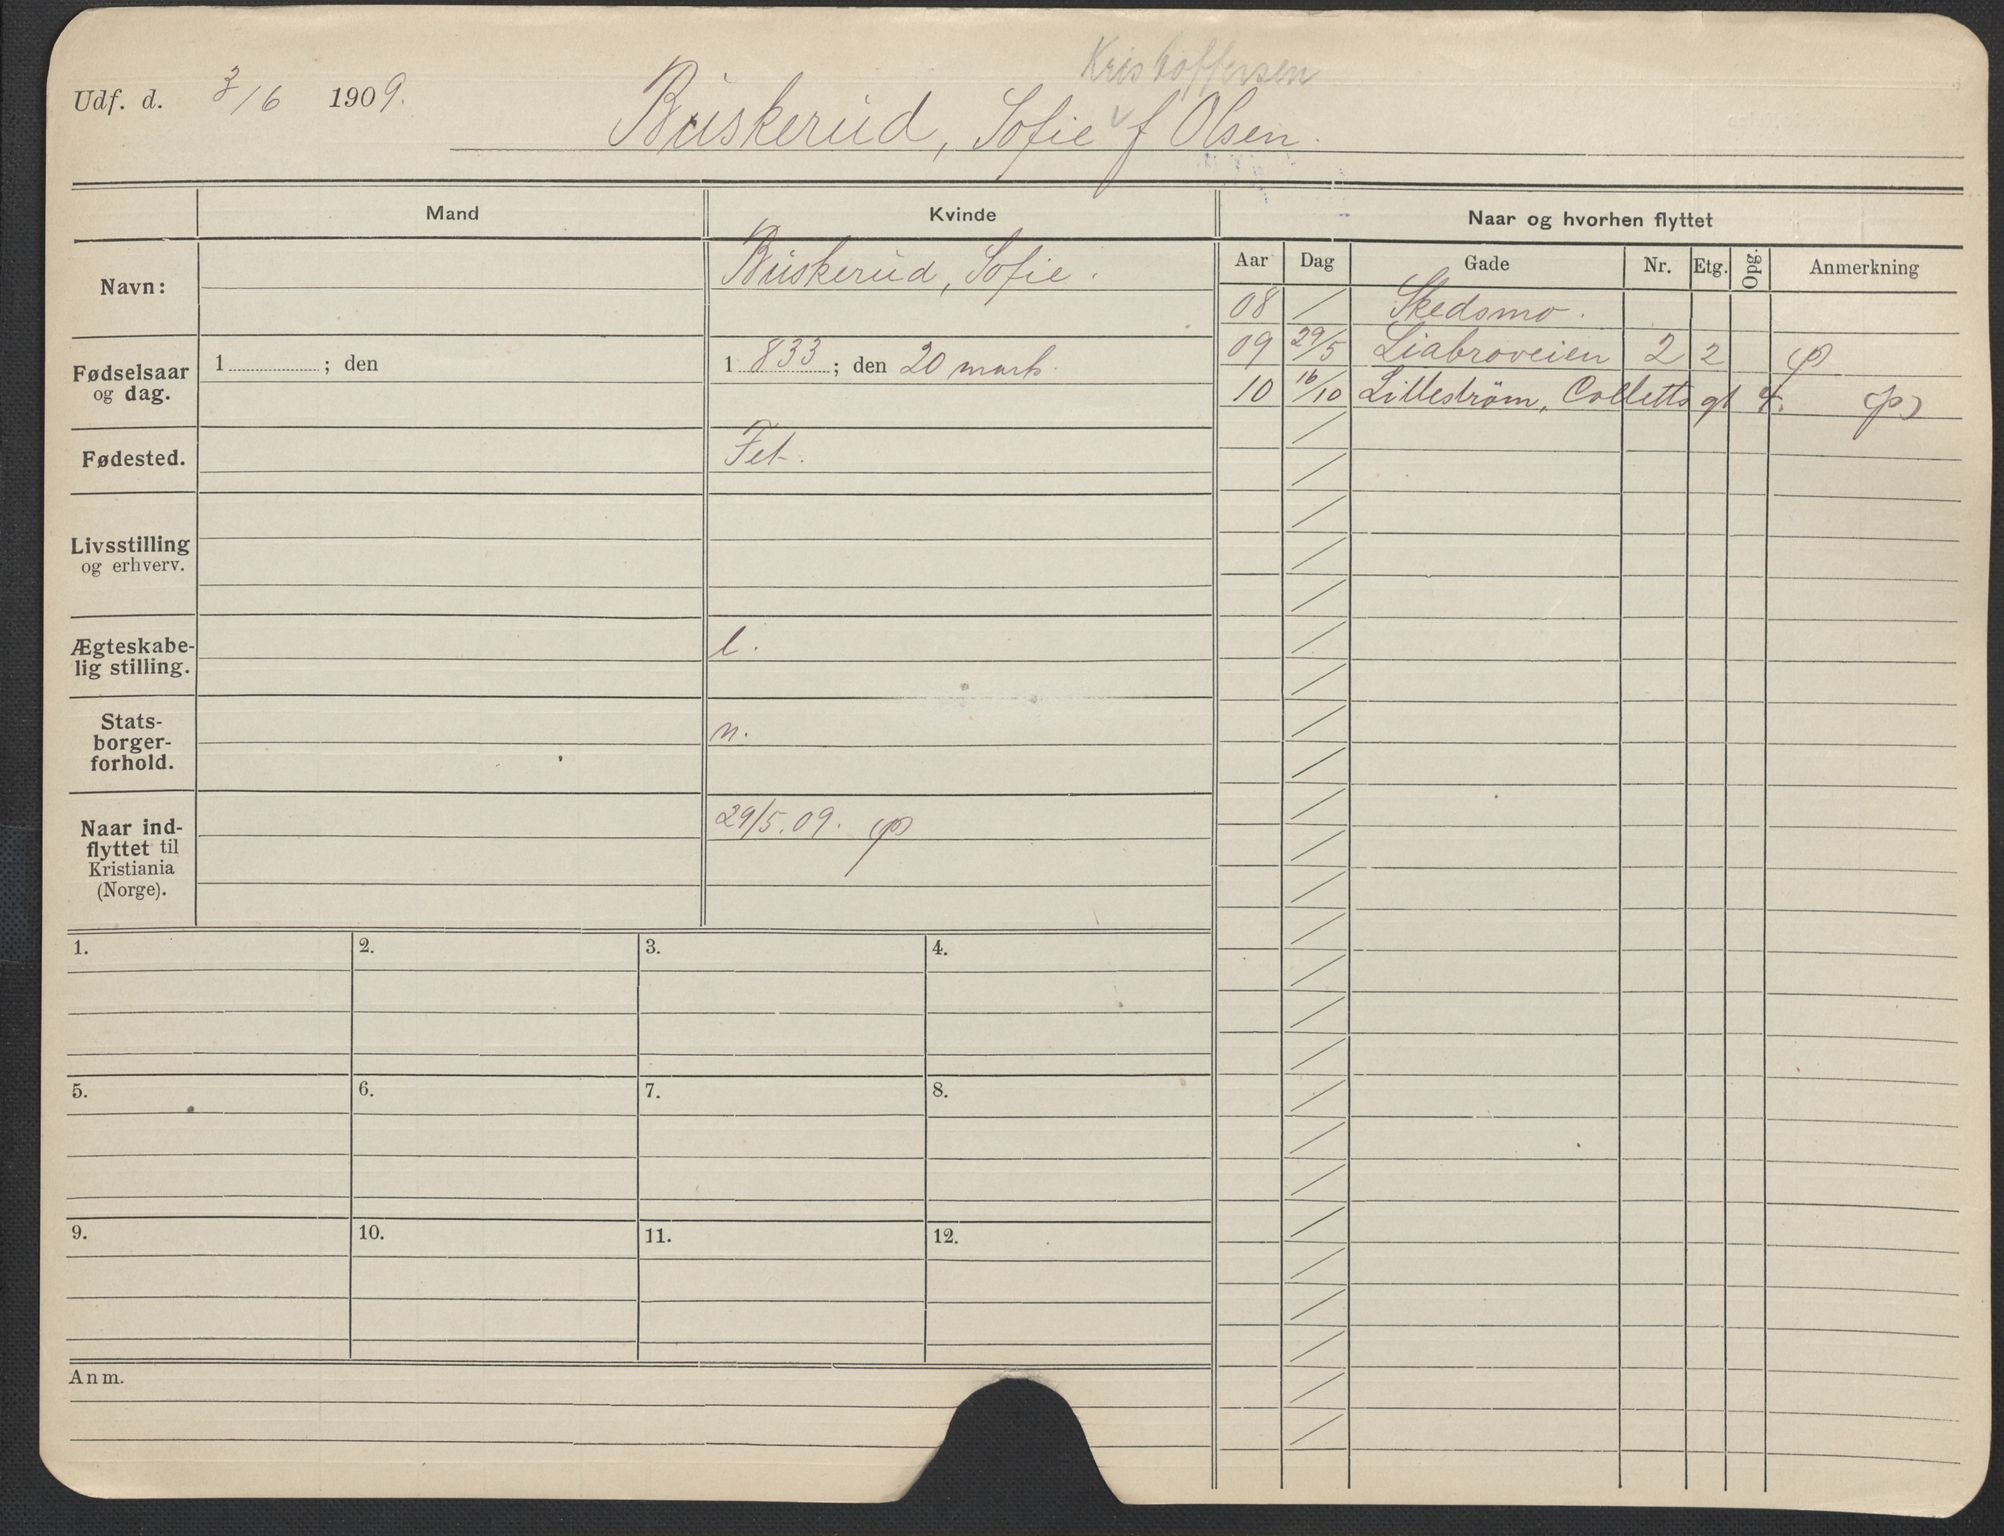 Kristoffersen
Udf. d. 3/6 1909.
Buskerud, Sofie f Olsen.
Mand
Kvinde
Naar og hvorhen flyttet
Navn:
Buskerud, Sofie.
Fødselsaar og dag.
1 ; den
1 833 ; den 20 marts.
Fødested.
Fet.
Livsstilling og erhverv.
Ægteskabe-
lig stilling.
l.
Stats-
borger-
forhold.
n.
Naar ind-
flyttet til
Kristiania
(Norge).
29/5. 09. (p)
Aar Dag Gade Nr. Etg. Opg. Anmerkning
08 / Skedsmo.
09 29/5 Liabroveien 2 2 (p)
10 16/10 Lillestrøm, Colletts gt 4. (p)
1. 2. 3. 4.
5. 6. 7. 8.
9. 10. 11. 12.
Anm.